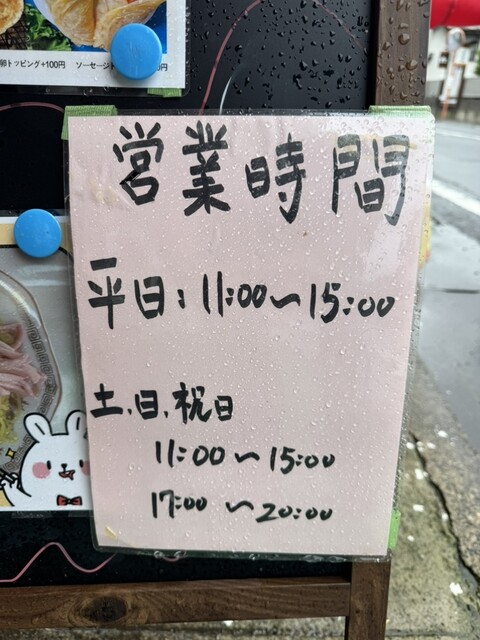 卵トッピング+100円 ソーセージ
営業時間
平日:11:00〜15:00
土、日、祝日
11:00〜15:00
17:00〜20:00